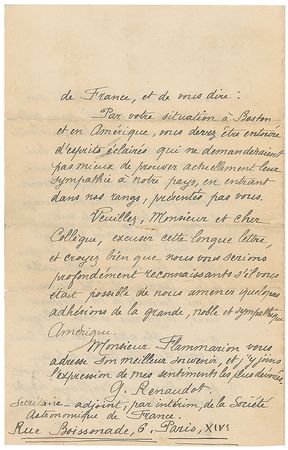 de France, et de vous dire :
Par votre situation à Boston
et en Amérique, vous devez être entouré
d'esprits éclairés qui ne demanderaient
pas mieux de prouver actuellement leur
sympathie à notre pays, en entrant
dans nos rangs, présentés par vous.
Veuillez, Monsieur et cher
Collègue, excuser cette longue lettre,
et croyez bien que nous vous serions
profondément reconnaissants s'il vous
était possible de nous amener quelques
adhésions de la grande, noble et sympathique
Amérique.
Monsieur Flammarion vous
adresse son meilleur souvenir, et j'y joins
l'expression de mes sentiments les plus dévoués.
G. Renaudot
Secrétaire-adjoint, par intérim, de la Société
Astronomique de France.
Rue Boissonade, 6, Paris, XIVe